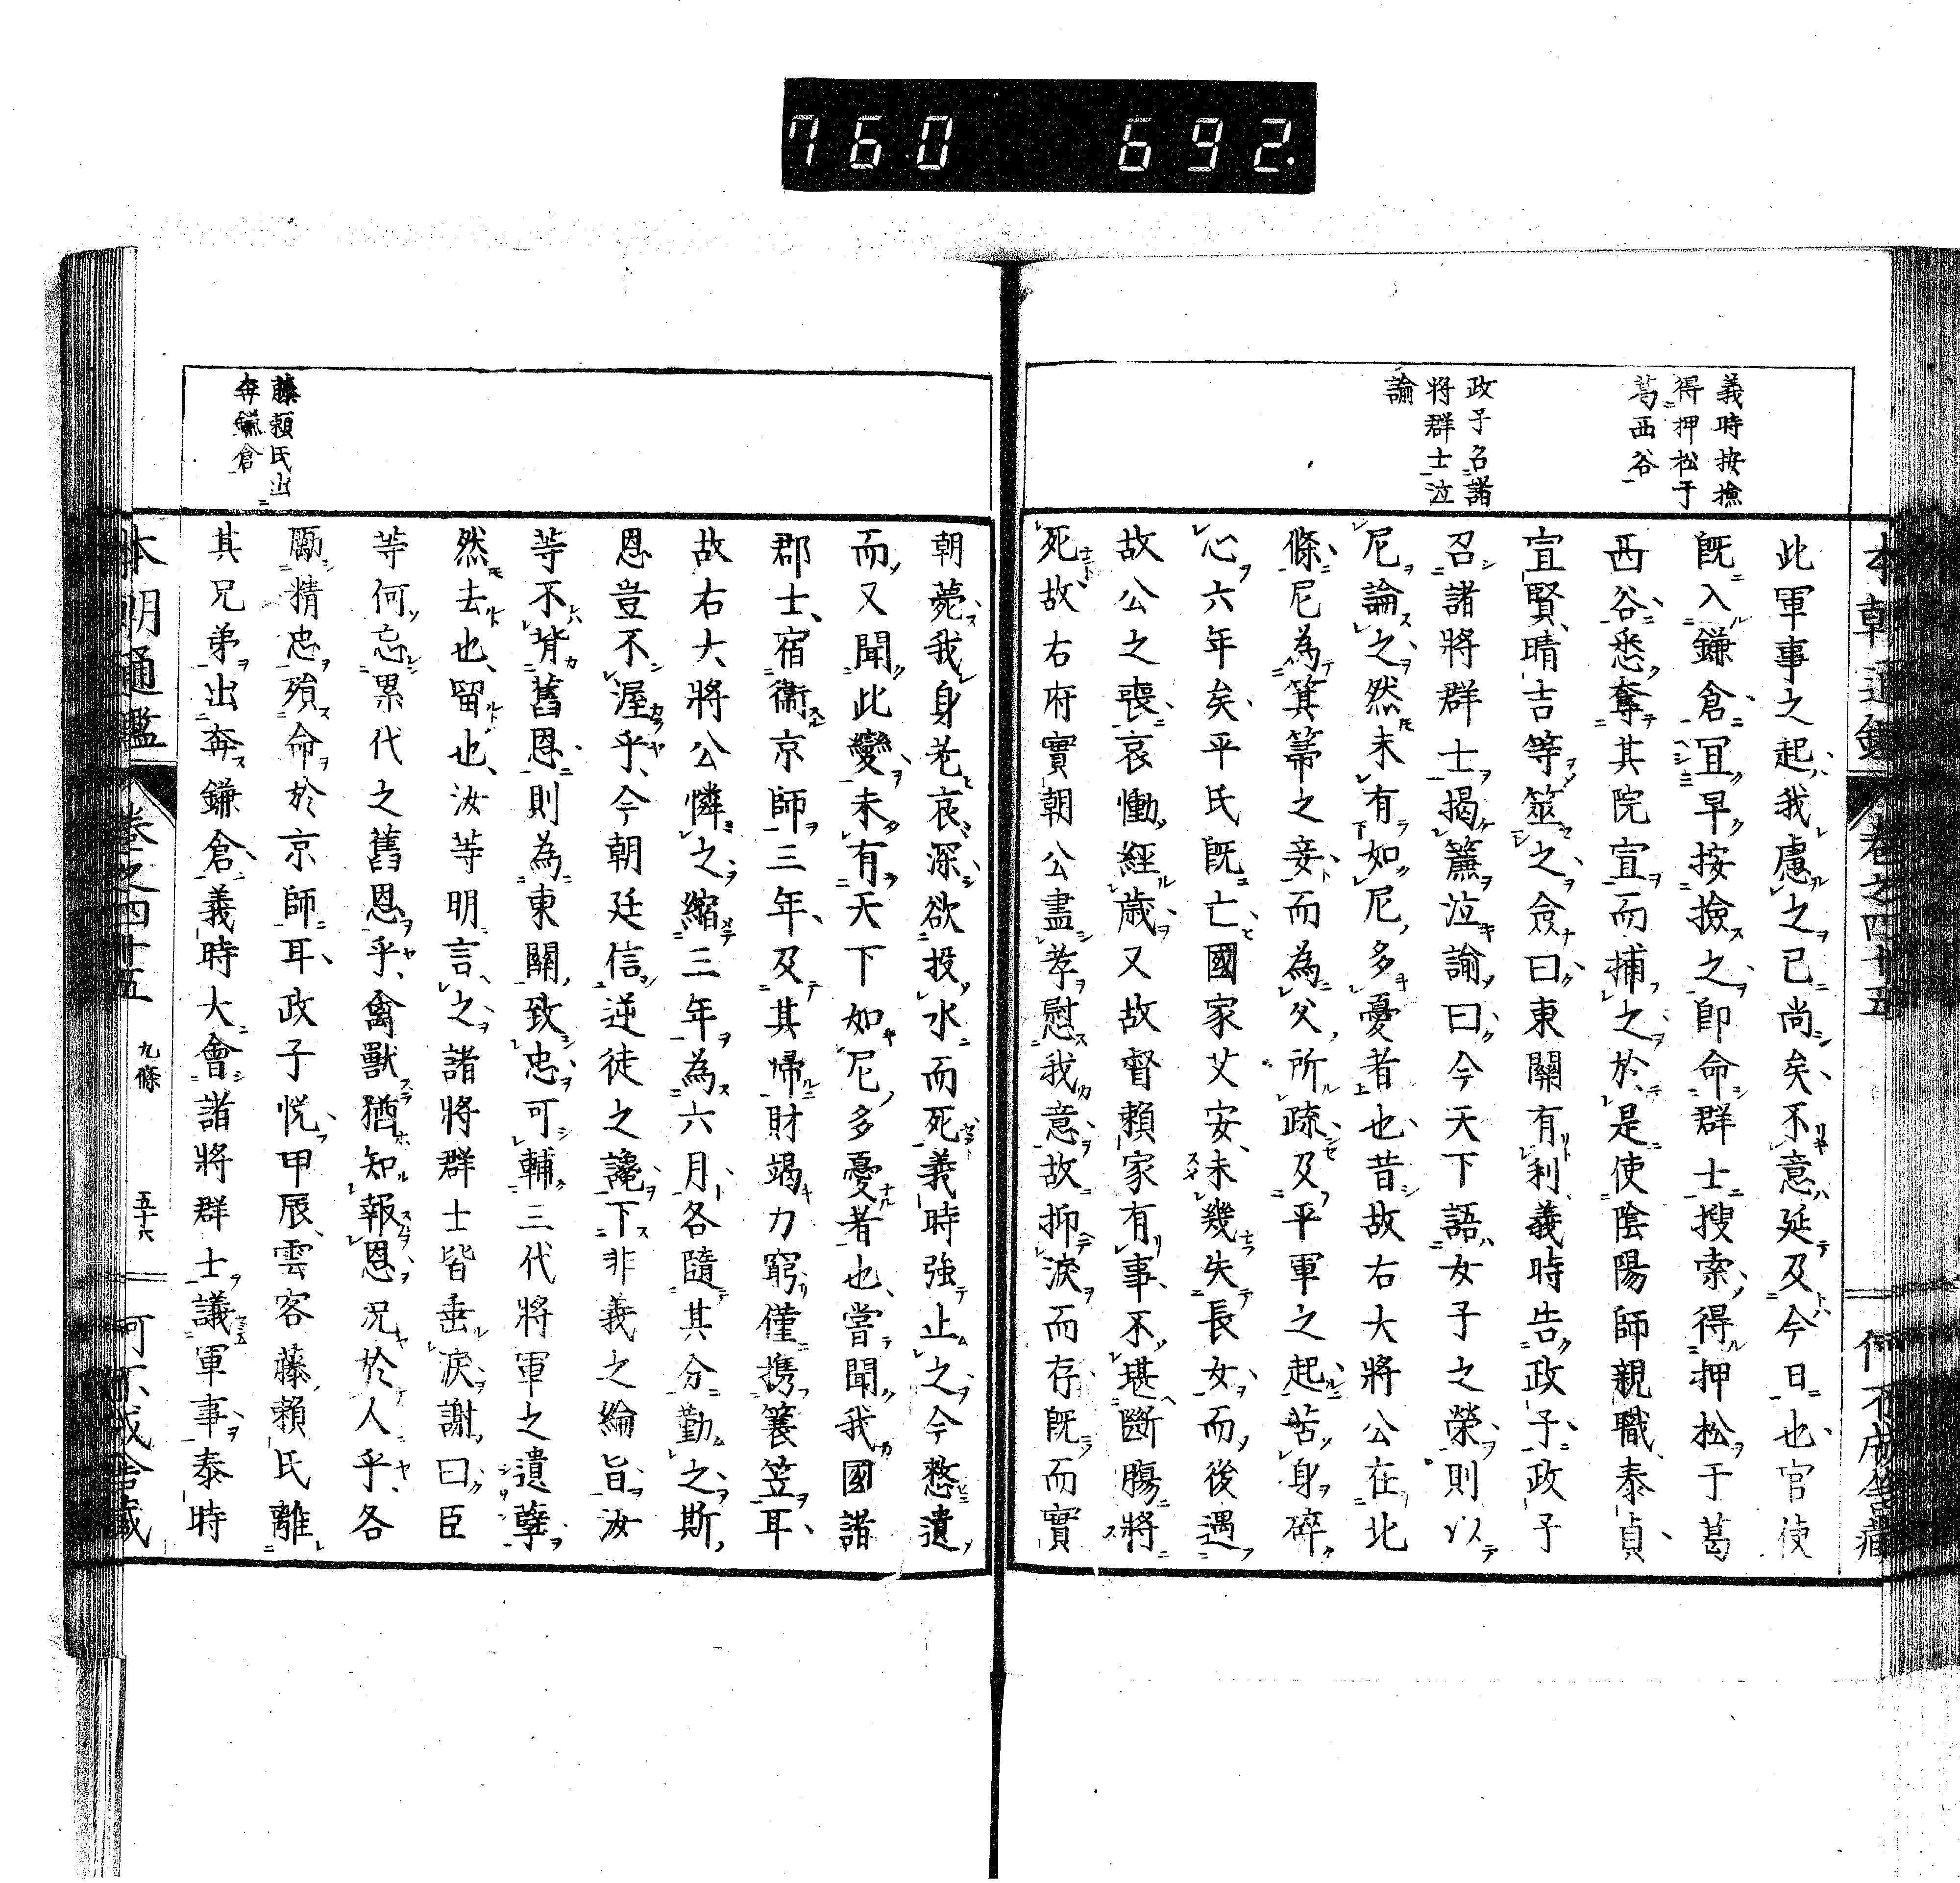 760 692.
本朝通鑑 卷之四十五
何不成舍藏
義時按撿
得押松于
葛西谷
政子召諸
將群士泣
諭
此軍事之起我慮之已尚矣不意延及今日也官使
既入鎌倉宜早按撿之即命群士搜索得押松于葛
西谷悉奪其院宣而捕之於是使陰陽師親職泰貞
宣賢晴吉等筮之僉曰東關有利義時告政子政子
召諸將群士揭簾泣諭曰今天下語女子之榮則以
尼論之然未有如尼多憂者也昔故右大將公在北
條尼為箕箒之妾而為父所疏及平軍之起苦身碎
心六年矣平氏既亡國家艾安未幾失長女而後遇
故公之喪哀慟經歲又故督賴家有事不堪斷腸將
死故右府實朝公盡孝慰我意故抑淚而存既而實
朝薨我身老哀深欲投水而死義時強止之今憖遺
而又聞此變未有天下如尼多憂者也嘗聞我國諸
郡士宿衞京師三年及其歸財竭力窮僅携簑笠耳
故右大將公憐之縮三年為六月各隨其分勤之斯
恩豈不渥乎今朝廷信逆徒之讒下非義之綸旨汝
等不背舊恩則為東關致忠可輔三代將軍之遺孽
然去也留也汝等明言之諸將群士皆垂淚謝曰臣
等何忘累代之舊恩乎禽獸猶知報恩況於人乎各
勵精忠殞命於京師耳政子悅甲辰雲客藤賴氏離
其兄弟出奔鎌倉義時大會諸將群士議軍事泰時
藤賴氏出
奔鎌倉
本朝通鑑 卷之四十五 九條 五十六
何不成舍藏